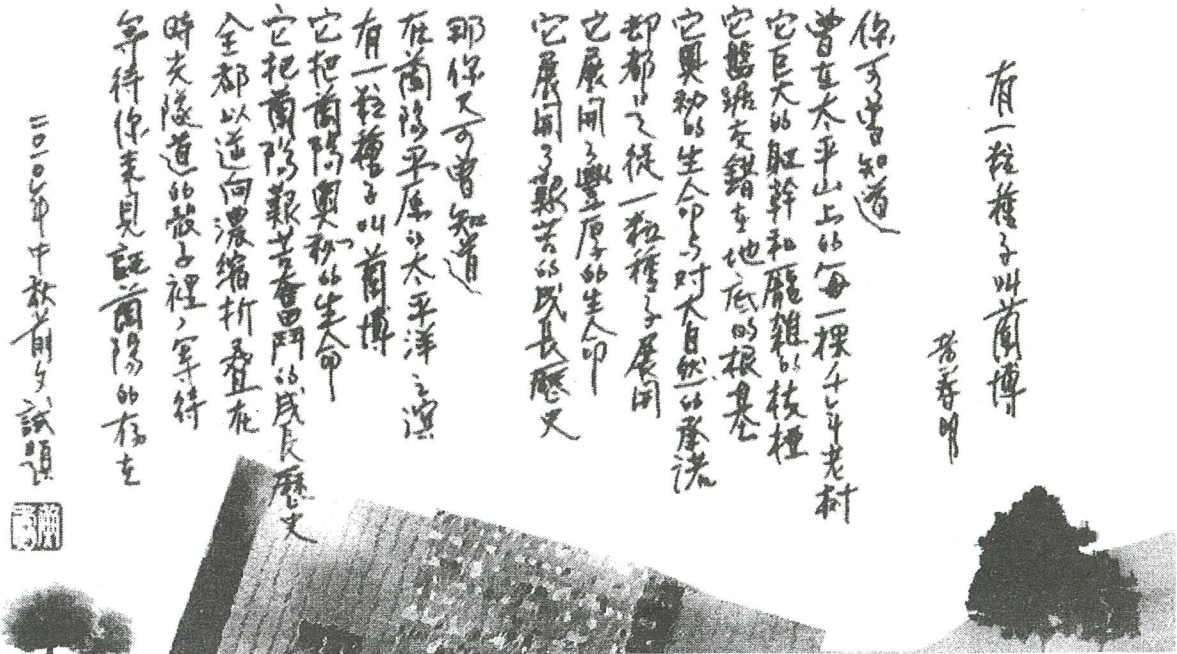 有一粒種子叫蘭博
黃春明
你可曾知道
曾在太平山上的每一棵千年老樹
它巨大的軀幹和龐雜的枝椏
它盤踞交錯在地底的根基
它奧秘的生命与對大自然的承諾
卻都是從一粒種子展開
它展開了豐厚的生命
它展開了艱苦的成長歷史
那你又可曾知道
在蘭陽平原的太平洋之濱
有一粒種子叫蘭博
它把蘭陽奧秘的生命
它把蘭陽艱苦奮鬥的成長歷史
全都以逆向濃縮折疊在
時光隧道的殼子裡，等待
等待你來見証蘭陽的存在
二〇一〇年中秋前夕 試題